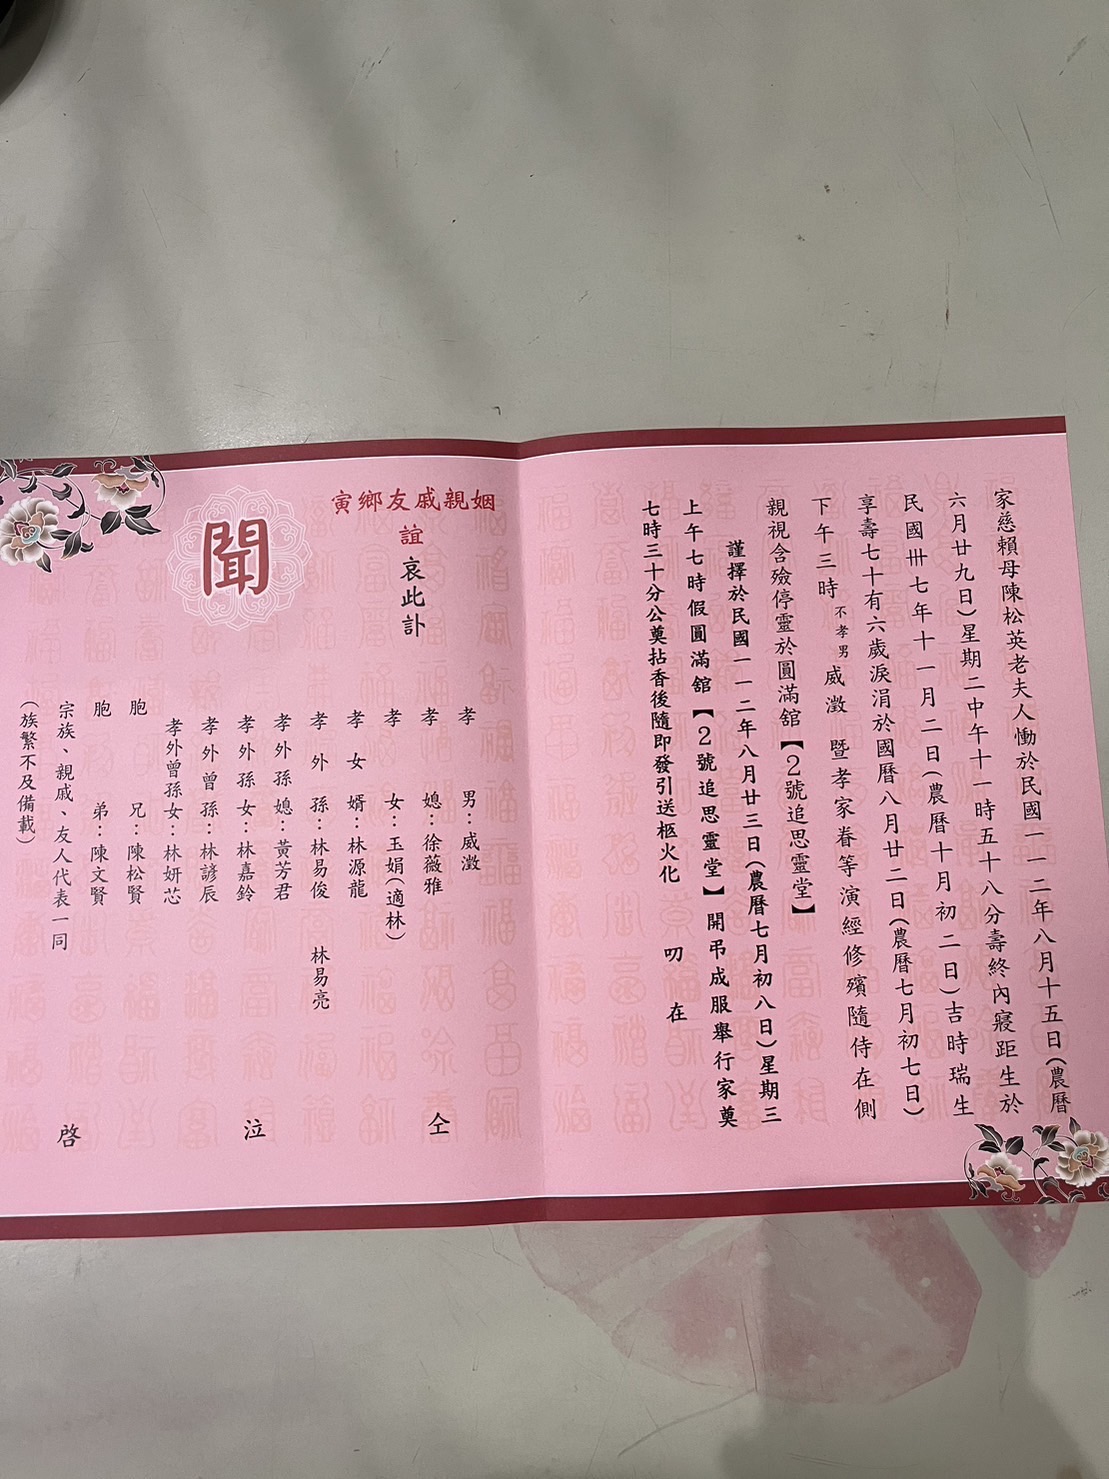 家慈賴母陳松英老夫人慟於民國一一二年八月十五日(農曆
六月廿九日)星期二中午十一時五十八分壽終內寢距生於
民國卅七年十一月二日(農曆十月初二日)吉時瑞生
享壽七十有六歲淚涓於國曆八月廿二日(農曆七月初七日)
下午三時不孝男威澂 暨孝家眷等演經修殯隨侍在側
親視含殮停靈於圓滿舘【2號追思靈堂】
謹擇於民國一一二年八月廿三日(農曆七月初八日)星期三
上午七時假圓滿舘【2號追思靈堂】開弔成服舉行家奠
七時三十分公奠拈香後隨即發引送柩火化 叨 在
姻親戚友鄉寅
誼 哀此訃
聞
孝 男：威澂
孝 媳：徐薇雅
孝 女：玉娟(適林)
孝 女 婿：林源龍
孝 外 孫：林易俊 林易亮
孝外孫媳：黃芳君
孝外孫女：林嘉鈴
孝外曾孫：林諺辰
孝外曾孫女：林妍芯
胞 兄：陳松賢
胞 弟：陳文賢
宗族、親戚、友人代表一同
(族繁不及備載)
仝
泣
啓